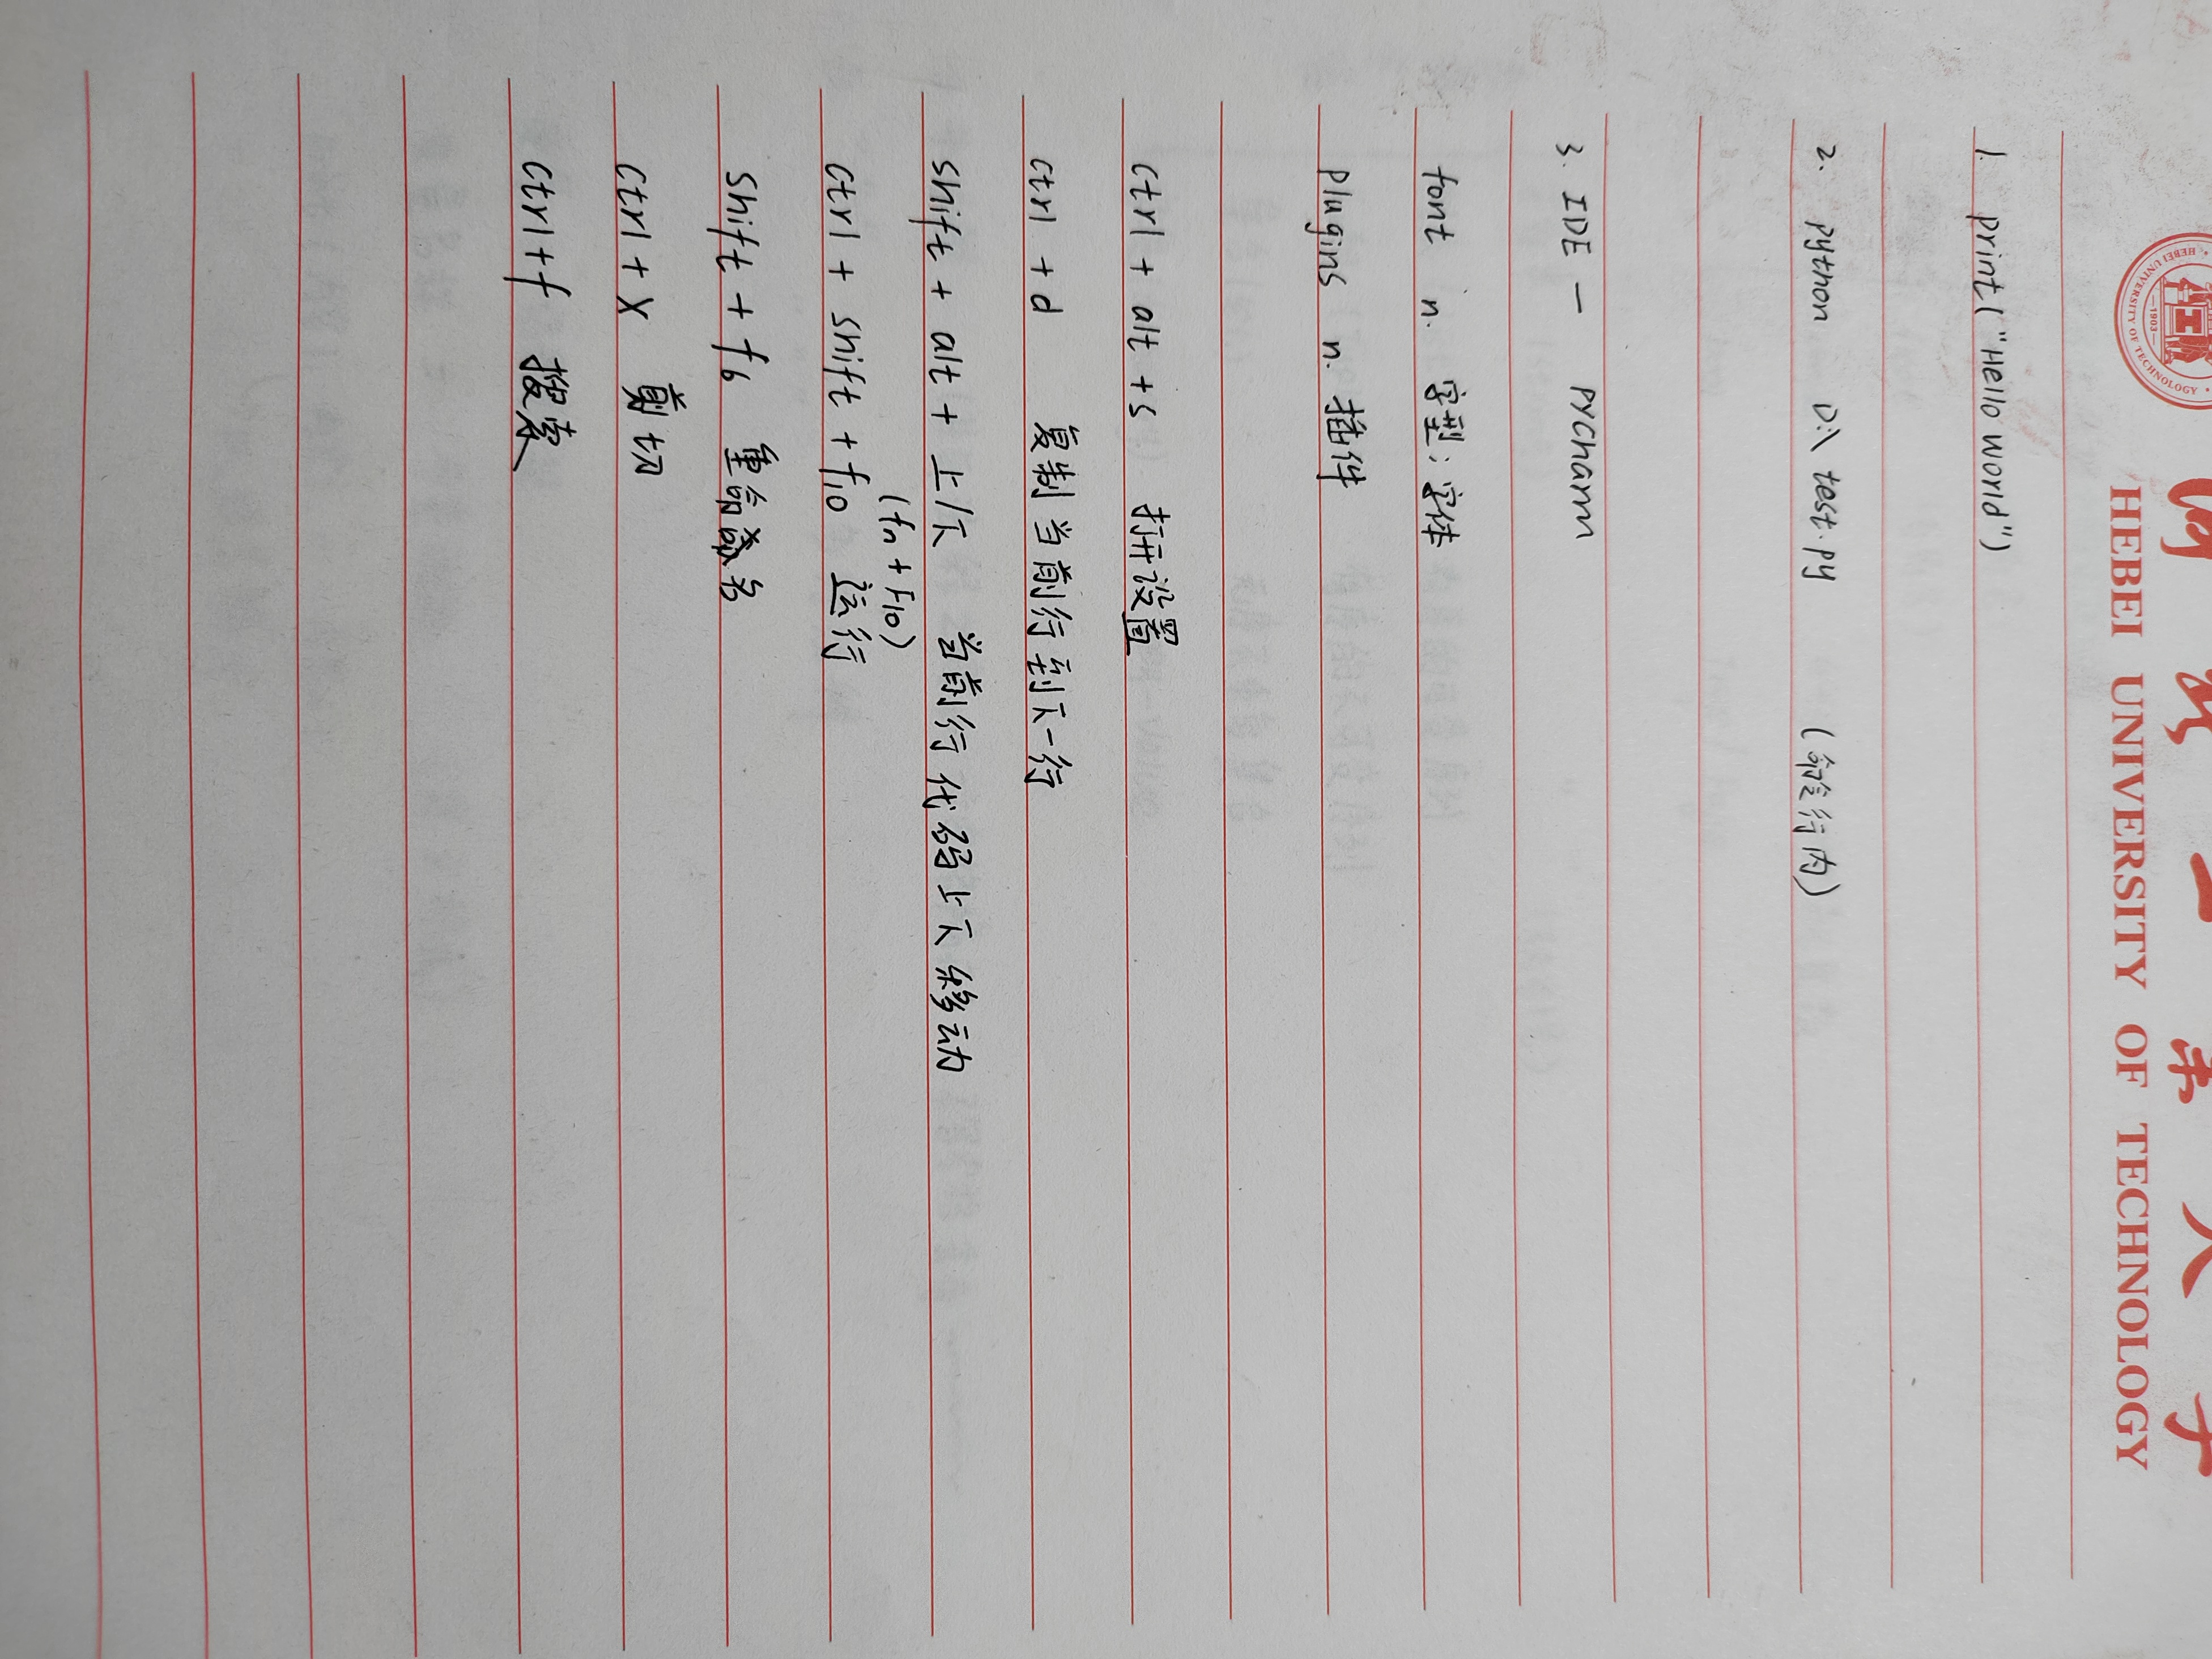 HEBEI UNIVERSITY OF TECHNOLOGY
1903
HEBEI UNIVERSITY OF TECHNOLOGY
1. print("Hello World")
2. python D:\ test.py (命令行内)
3. IDE — PyCharm
font n. 字型；字体
Plugins n. 插件
ctrl + alt + s 打开设置
ctrl + d 复制当前行到下一行
shift + alt + 上/下 当前行代码上下移动
(fn + F10)
ctrl + shift + f10 运行
shift + f6 重命名
ctrl + X 剪切
ctrl+f 搜索